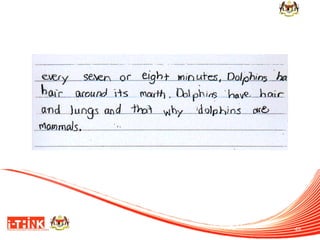 every seven or eight minutes, Dolphins ha
hair around its mouth. Dolphins have hair
and lungs and that why dolphins are
mammals.
i-THINK